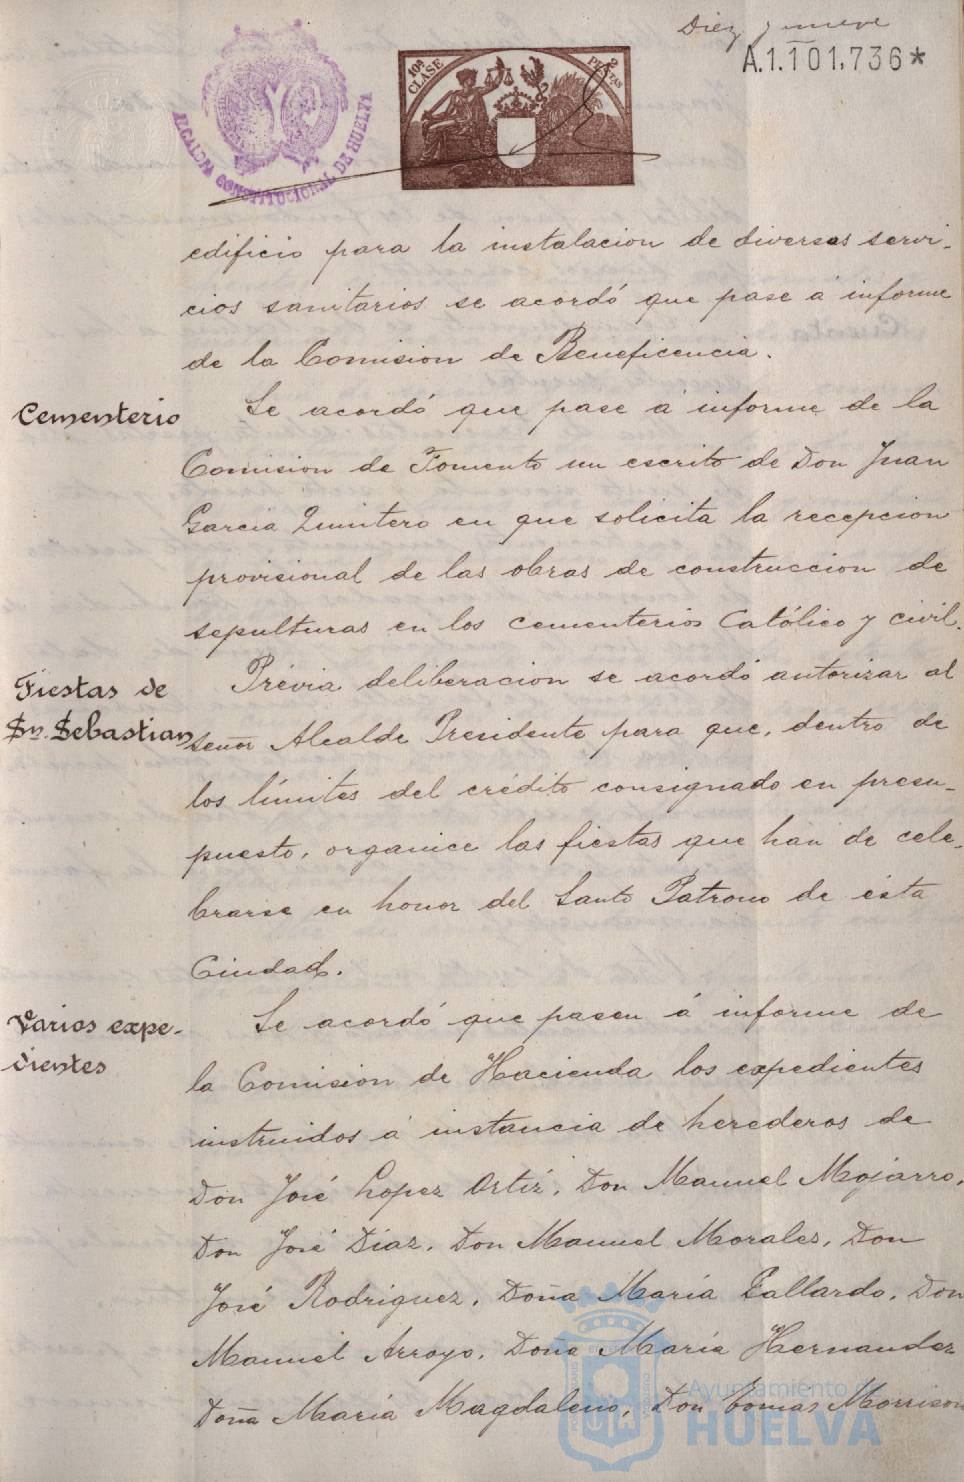 Diez y nueve
A.1.101.736*
ALCALDIA CONSTITUCIONAL DE HUELVA
10ª CLASE
2 PESETAS
edificio para la instalacion de diversos servi-
cios sanitarios se acordó que pase á informe
de la Comision de Beneficencia.
Cementerio
Se acordó que pase á informe de la
Comision de Fomento un escrito de Don Juan
Garcia Quintero en que solicita la recepcion
provisional de las obras de construccion de
sepulturas en los cementerios Católico y civil.
Fiestas de
Sn. Sebastian
Prévia deliberacion se acordó autorizar al
señor Alcalde Presidente para que, dentro de
los límites del crédito consignado en presu-
puesto, organice las fiestas que han de cele-
brarse en honor del Santo Patrono de ésta
Ciudad.
Varios expe-
dientes
Se acordó que pasen á informe de
la Comision de Hacienda los expedientes
instruidos á instancia de herederos de
Don José Lopez Ortiz, Don Manuel Mojarro,
Don José Díaz, Don Manuel Morales, Don
José Rodriguez, Doña María Gallardo, Don
Manuel Arroyo, Doña María Hernandez
Doña María Magdaleno, Don Tomas Morrison
Ayuntamiento de
HUELVA